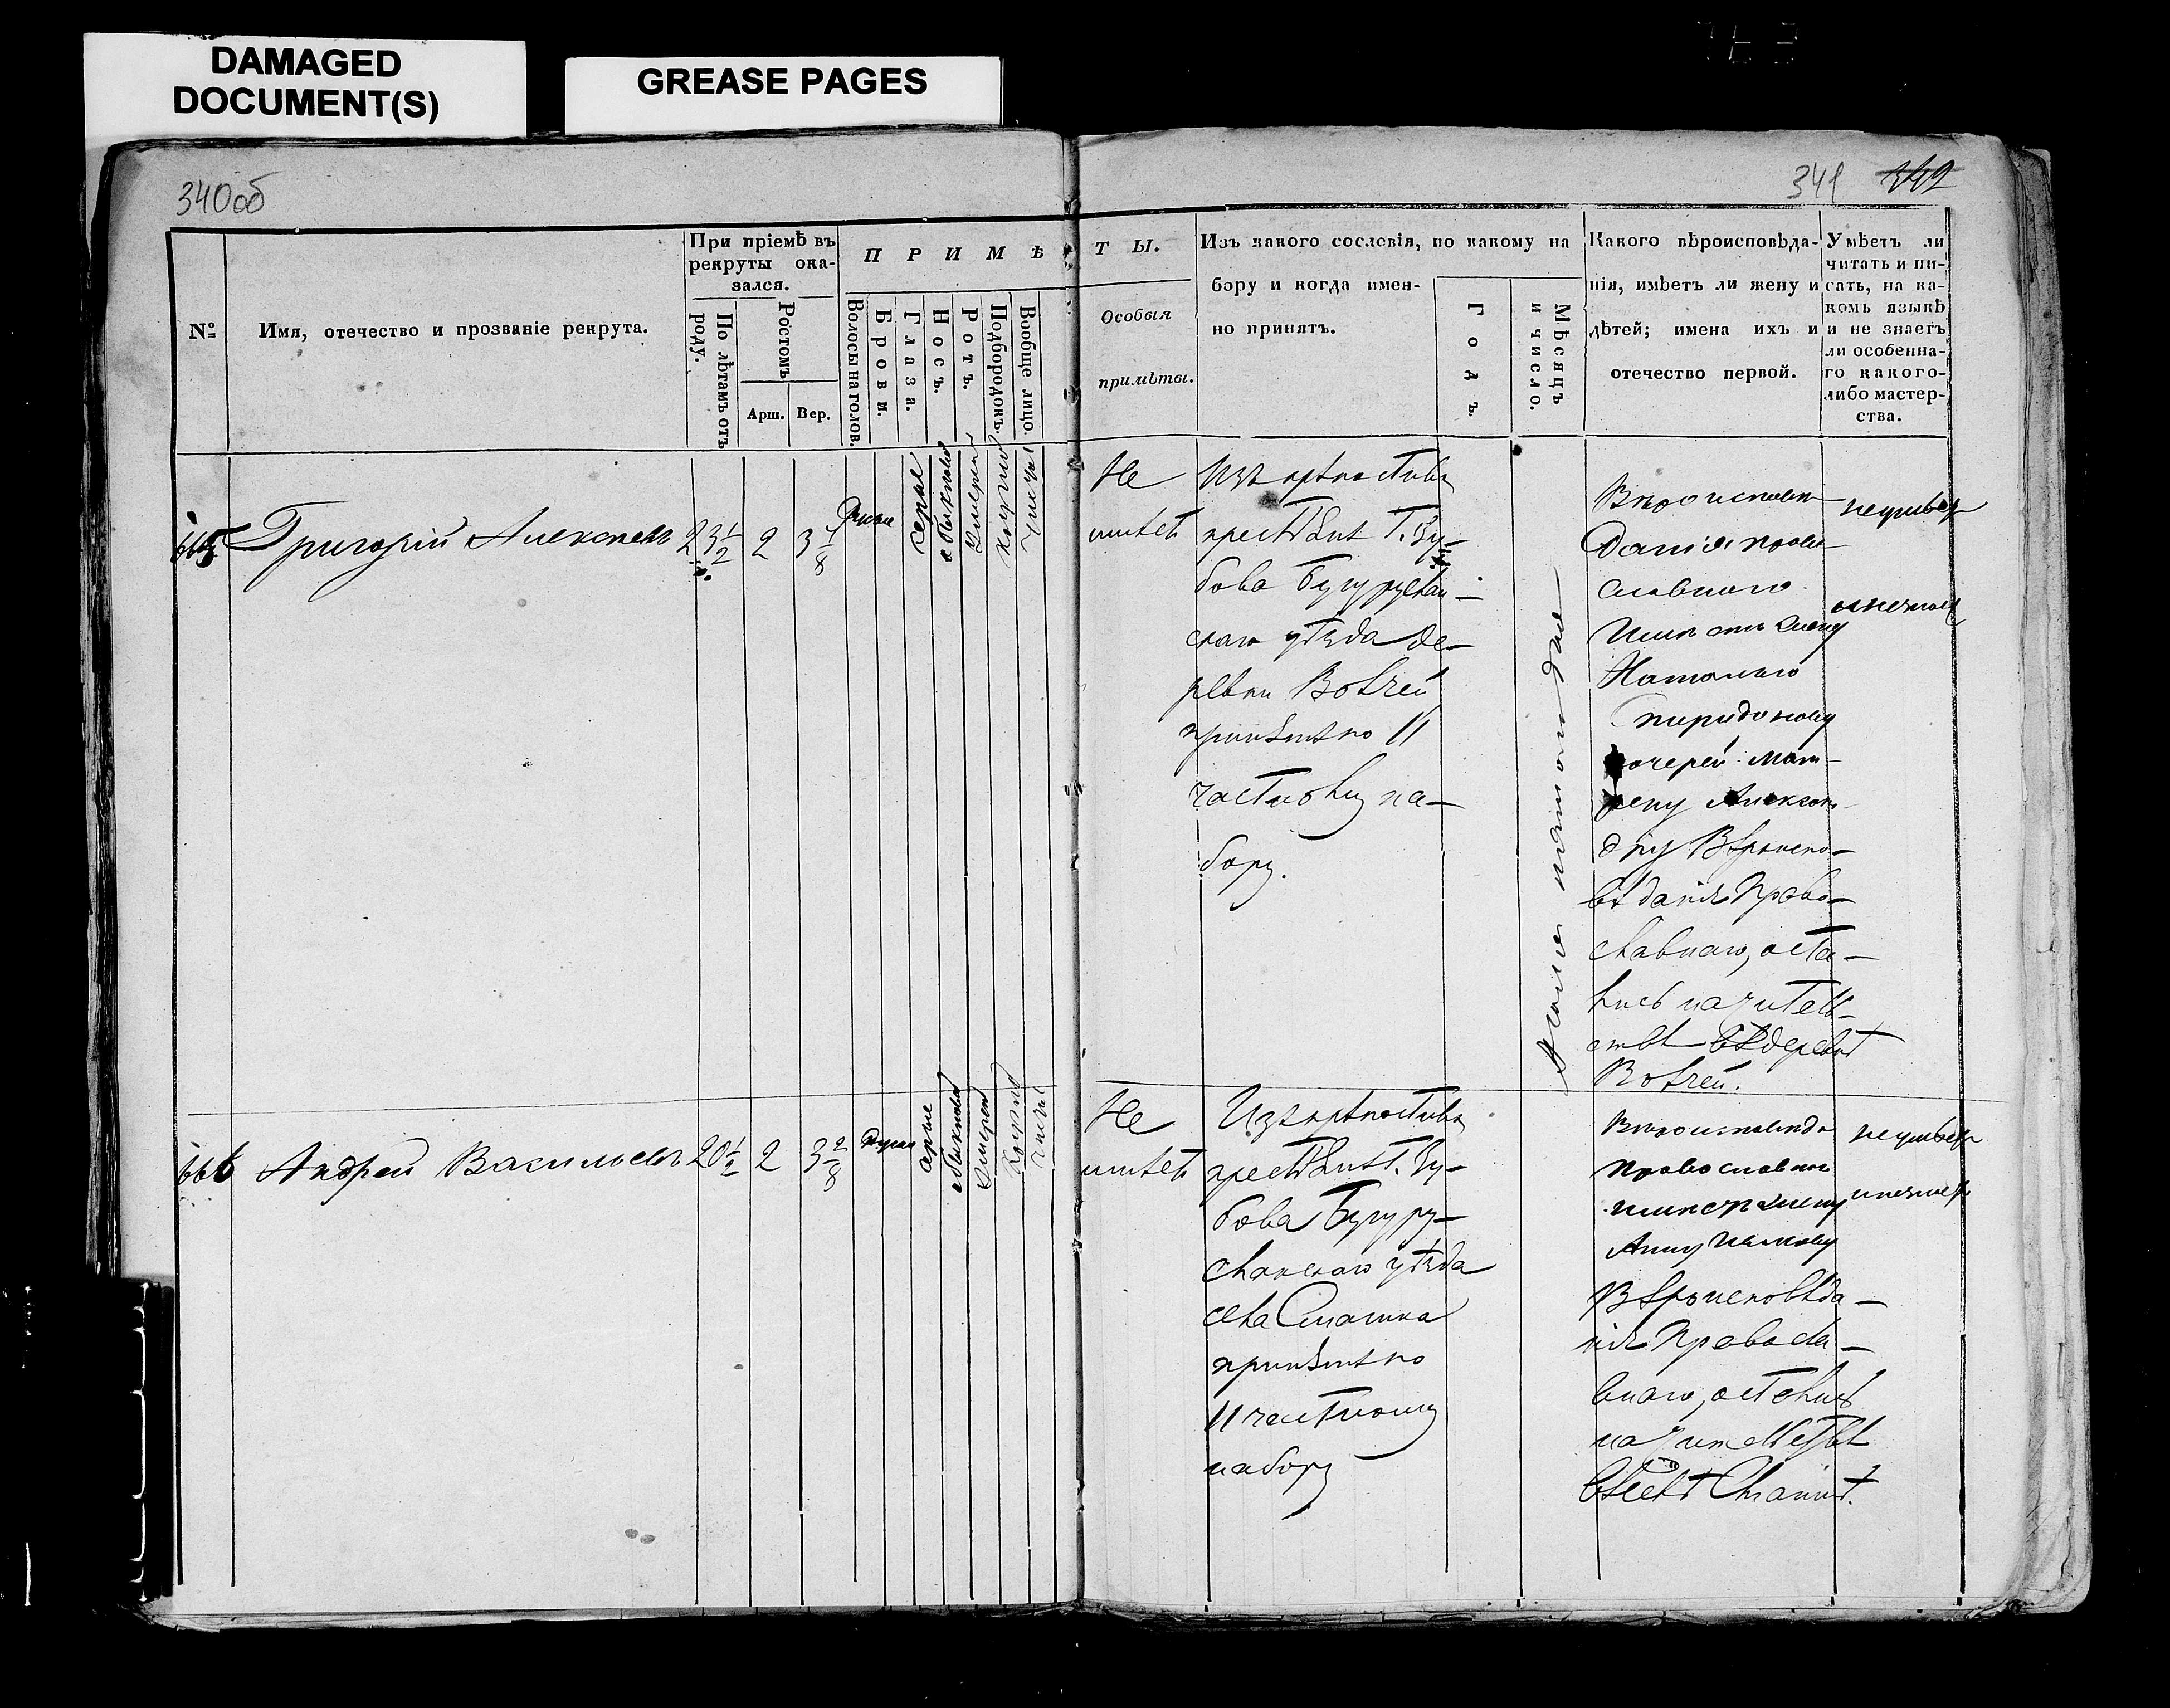 DAMAGED
DOCUMENT(S)
GREASE PAGES
340об
341 342
№
Имя, отечество и прозваніе рекрута.
При пріемѣ въ
рекруты ока-
зался.
По лѣтамъ отъ
роду.
Ростомъ
Арш. Вер.
ПРИМѢТЫ.
Волосы на голов.
Брови.
Глаза.
Носъ.
Ротъ.
Подбородокъ.
Вообще лицо.
Особыя
примѣты.
Изъ какого сословія, по какому на
бору и когда имен-
но принятъ.
Годъ.
Мѣсяцъ
и число.
Какого вѣроисповѣда-
нія, имѣетъ ли жену и
дѣтей; имена ихъ и
отечество первой.
Умѣетъ ли
читать и пи-
сать, на ка-
комъ языкѣ
и не знаетъ
ли особенна-
го какого-
либо мастер-
ства.
665 Григорій Алексѣевъ 23 1/2 2 3 7/8
русые
серые
обыкнове
умерен
кругло
чисто
Не
имѣетъ
Изъ крѣпостныхъ
крестьянъ Г. Зу-
бова Бугуруслан-
скаго уѣзда де-
ревни Вовчей
принятъ по 11
частному на-
бору.
Вѣроисповѣ-
данія право-
славнаго
Имѣетъ жену
Наталью
Спиридонову
дочерей Мат-
рену Алексан-
дру Вѣроиспо-
вѣданія Право-
славнаго, оста-
лись на житель-
ствѣ въ деревнѣ
Вовчей.
неумѣетъ
и незнаетъ
666 Андрей Васильевъ 20 1/2 2 3 2/8
русые
серые
обыкнове
умерен
кругло
чисто
Не
имѣетъ
Изъ крѣпостныхъ
крестьянъ Г. Зу-
бова Бугуру-
сланскаго уѣзда
села
принятъ по
11 частному
набору
Вѣроисповѣда
православнаго
имѣетъ жену
Анну
Вѣроисповѣда-
нія Правосла-
внаго, остались
на жительствѣ
въ селѣ
неумѣетъ
и незнаетъ